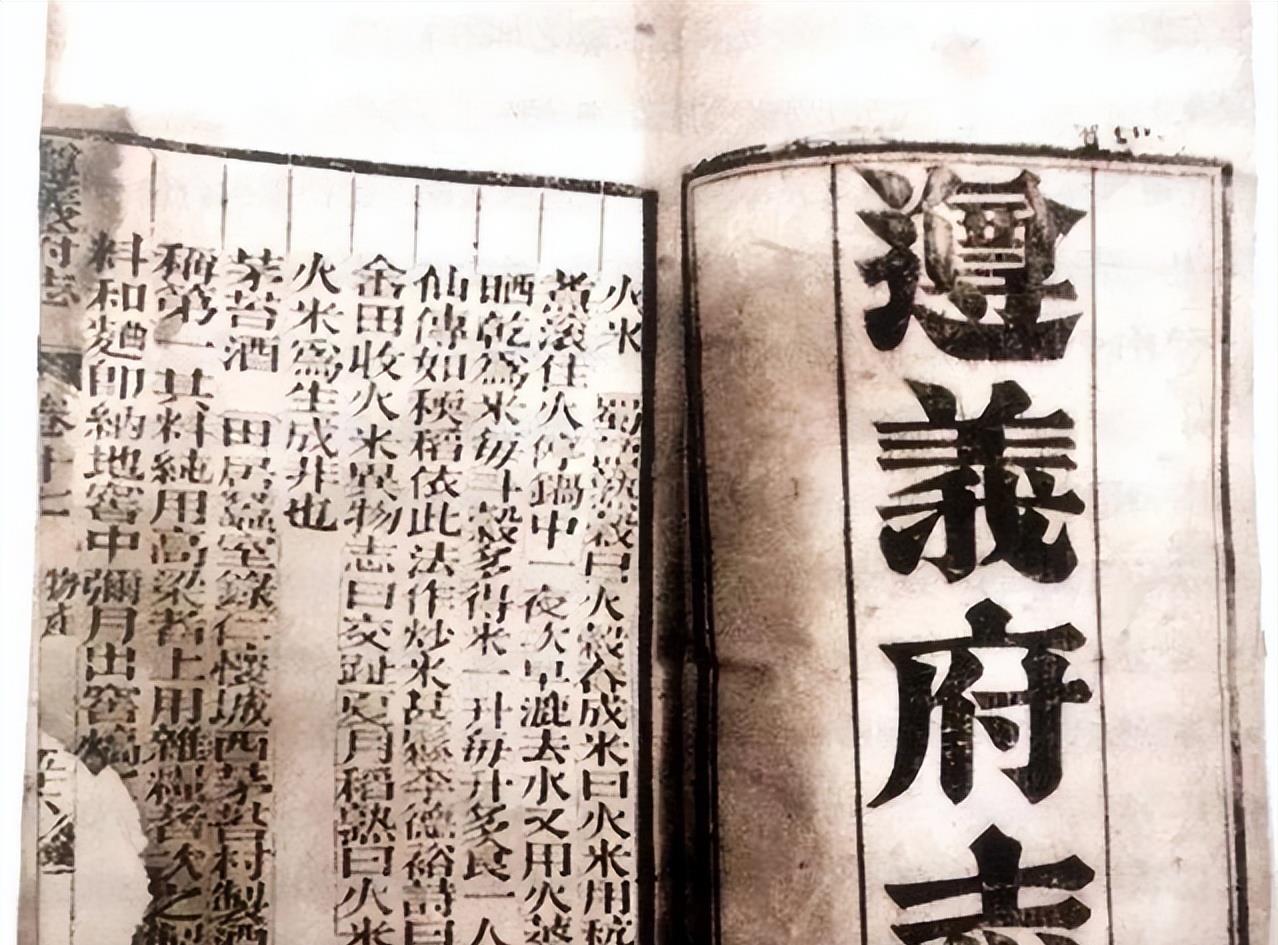 遵義府志
火米 蜀 穀曰火穀舂成米曰火米用秔
煮滚住火停鍋中一夜次早漉去水又用火蒸
晒乾爲米每斗穀多得米一升每升多食一人
仙傳如稉稻依此法作炒米甚 李德裕詩曰
畬田收火米異物志曰交趾夏月稻熟曰火米
火米爲生成非也
茅苔酒 田居蠶室錄仁懷城西茅苔村製酒
稱第一其料純用高粱者上用雜糧者次之製
料和麯即納地窖中彌月出窖熇
義府志 卷十七 物產